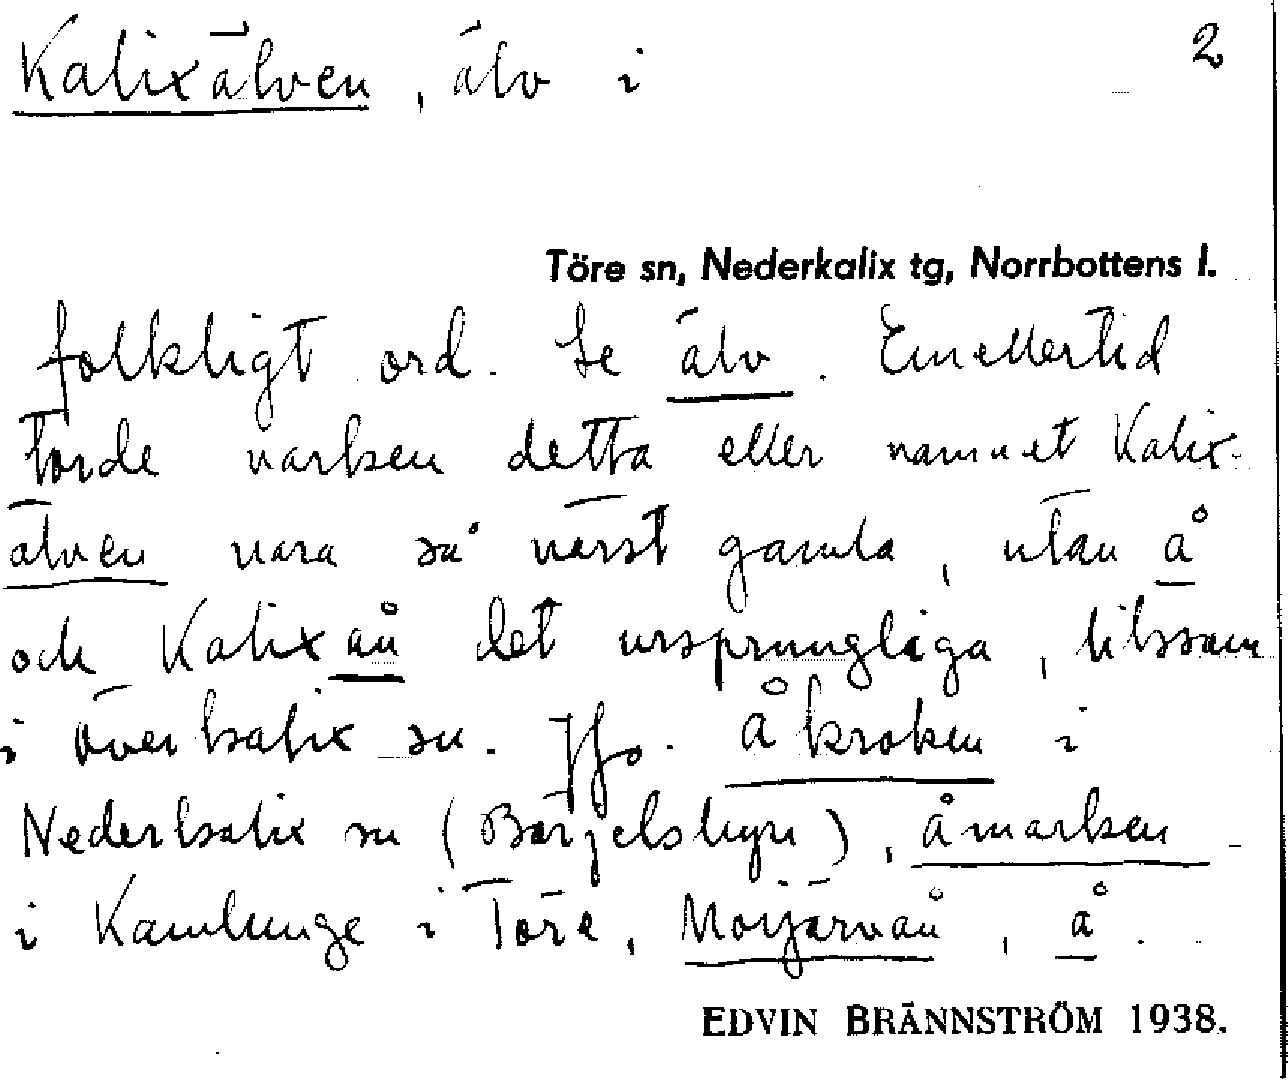 Kalixälven, älv i 2
Töre sn, Nederkalix tg, Norrbottens l.
folkligt ord. Se älv. Emellertid
torde varken detta eller namnet Kalix-
älven vara så värst gamla, utan å
och Kalixån det ursprungliga, liksom
i Överkalix sn. Jfr. Åkroken i
Nederkalix sn (Börjelsbyn), Åmarken
i Kamlunge i Töre, Morjärvån, å.
EDVIN BRÄNNSTRÖM 1938.